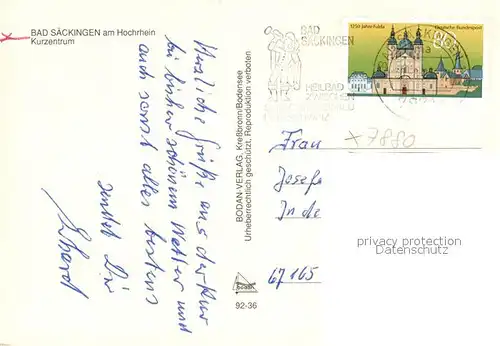 BAD SÄCKINGEN am Hochrhein
Kurzentrum
Herzliche Grüße aus der Kur
bei bisher schönem Wetter und
auch sonst alles bestens
sendet Dir
Eberard
BODAN-VERLAG, Kreßbronn/Bodensee
Urheberrechtlich geschützt. Reproduktion verboten
92-36
BAD
SÄCKINGEN
HEILBAD
ZWISCHEN
1250 Jahre Fulda
Deutsche Bundespost
x 7880
Frau
Josefa
67165
privacy protection
Datenschutz